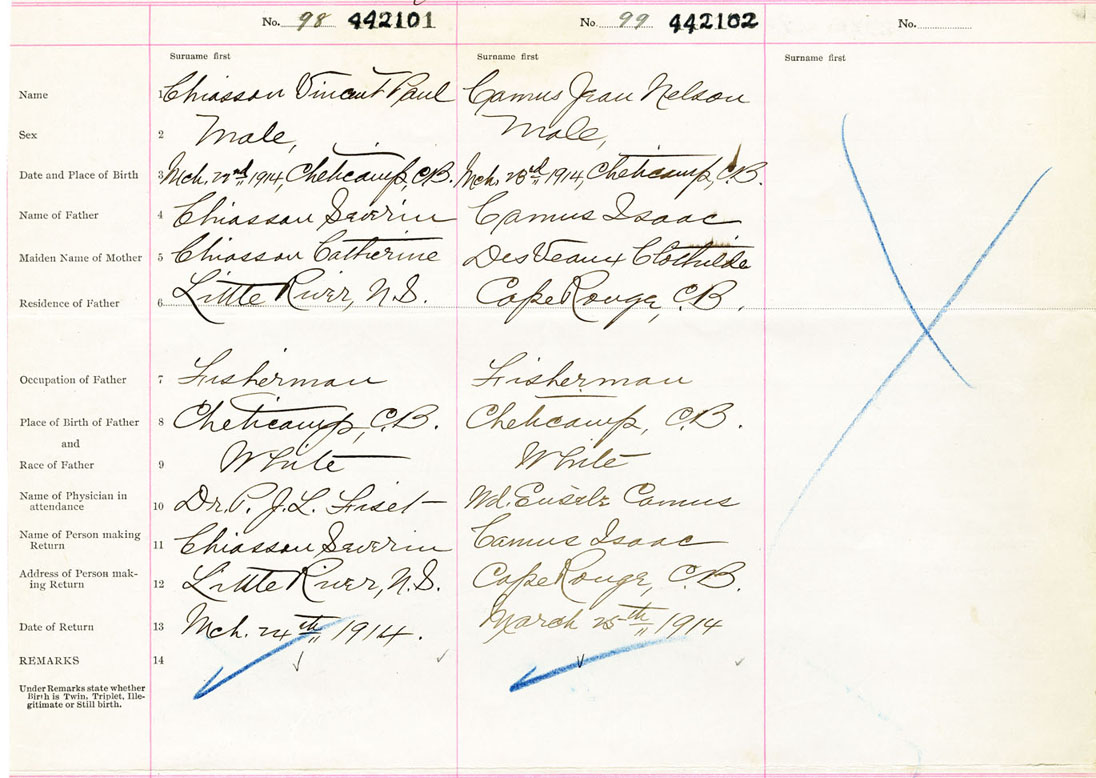 No. 98 442101 No. 99 442102 No.
Surname first Surname first Surname first
Name 1 Chiasson Vincent Paul Camus Jean Nelson
Sex 2 Male, Male,
Date and Place of Birth 3 Mch. 22nd, 1914, Cheticamp, C.B. Mch. 23rd, 1914, Cheticamp, C.B.
Name of Father 4 Chiasson Saverin Camus Isaac
Maiden Name of Mother 5 Chiasson Catherine DesVeaux Clothilde
Residence of Father 6 Little River, N.S. Cape Rouge, C.B.
Occupation of Father 7 Fisherman Fisherman
Place of Birth of Father 8 Cheticamp, C.B. Cheticamp, C.B.
and
Race of Father 9 White White
Name of Physician in
attendance 10 Dr. P. J. L. Fiset Camus
Name of Person making
Return 11 Chiasson Saverin Camus Isaac
Address of Person mak-
ing Return 12 Little River, N.S. Cape Rouge, C.B.
Date of Return 13 Mch. 24th 1914. March 25th 1914
REMARKS 14
Under Remarks state whether
Birth is Twin, Triplet, Ille-
gitimate or Still birth.